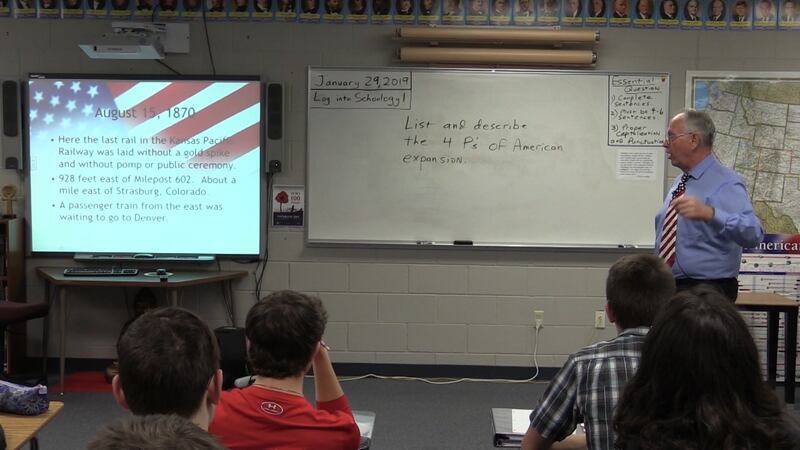 August 15, 1870
• Here the last rail in the Kansas Pacific
Railway was laid without a gold spike
and without pomp or public ceremony.
• 928 feet east of Milepost 602. About a
mile east of Strasburg, Colorado.
• A passenger train from the east was
waiting to go to Denver.
January 29, 2019
Log into Schoology!
List and describe
the 4 P's of American
expansion.
Essential
Question
1) Complete
Sentences
2) Must be 4-6
sentences
3) Proper
Capitalization
and Punctuation